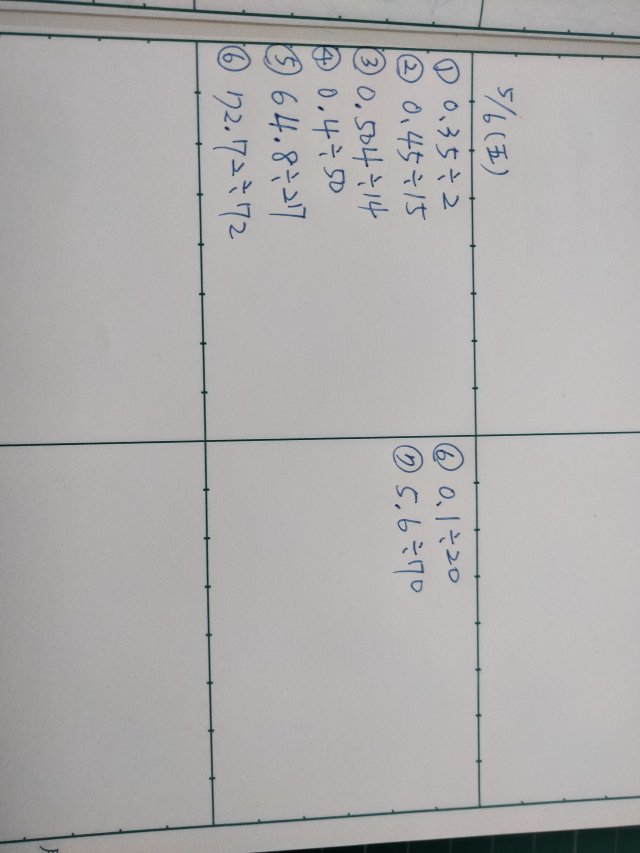 5/6(五)
① 0.35÷2
② 0.45÷15
③ 0.504÷14
④ 0.4÷50
⑤ 64.8÷27
⑥ 72.72÷72
⑥ 0.1÷20
⑦ 5.6÷70